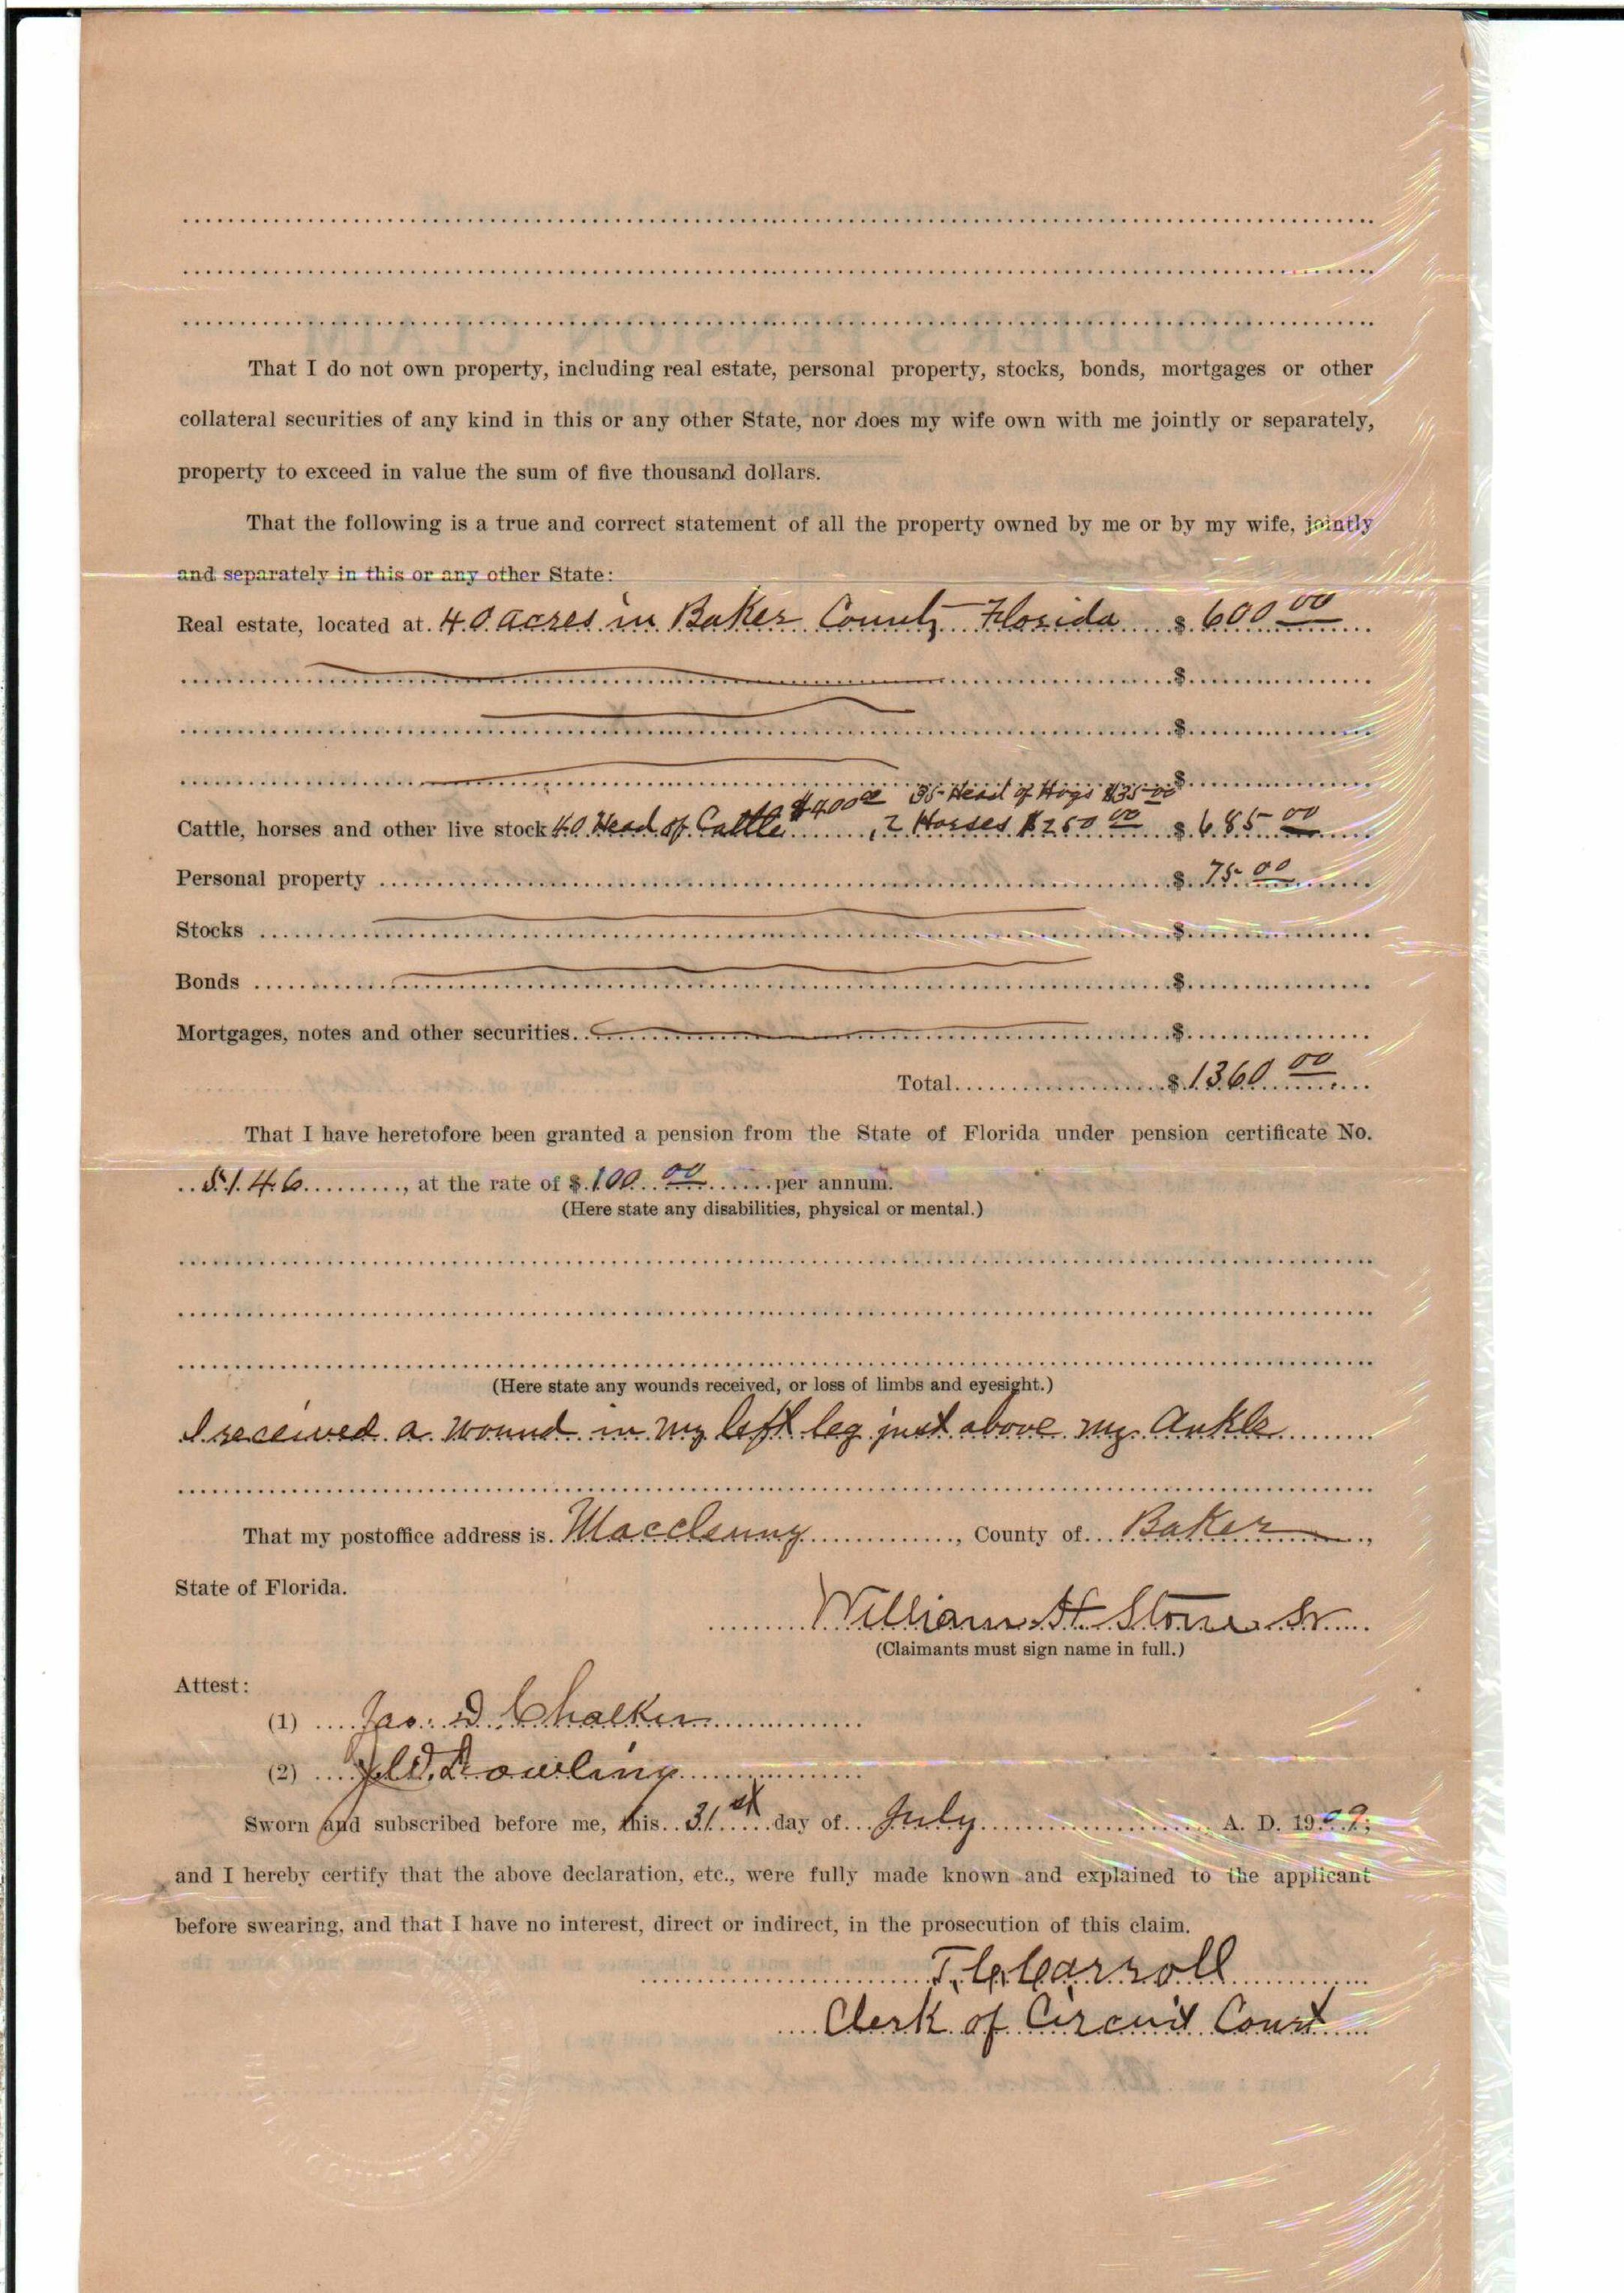 That I do not own property, including real estate, personal property, stocks, bonds, mortgages or other
collateral securities of any kind in this or any other State, nor does my wife own with me jointly or separately,
property to exceed in value the sum of five thousand dollars.
That the following is a true and correct statement of all the property owned by me or by my wife, jointly
and separately in this or any other State:
Real estate, located at 40 acres in Baker County Florida $ 600 00
$
$
$
$400 00 35 Head of Hogs $35 00
Cattle, horses and other live stock 40 Head of Cattle, 2 Horses $250 00 $ 685 00
Personal property $ 75 00
Stocks $
Bonds $
Mortgages, notes and other securities $
Total $ 1360 00
That I have heretofore been granted a pension from the State of Florida under pension certificate No.
5146, at the rate of $ 100 00 per annum.
(Here state any disabilities, physical or mental.)
(Here state any wounds received, or loss of limbs and eyesight.)
I received a wound in my left leg just above my Ankle
That my postoffice address is Macclenny, County of Baker,
State of Florida.
William H. Stone Sr
(Claimants must sign name in full.)
Attest:
(1) Jas. D Chalker
(2) Dowling
Sworn and subscribed before me, this 31st day of July A. D. 1909;
and I hereby certify that the above declaration, etc., were fully made known and explained to the applicant
before swearing, and that I have no interest, direct or indirect, in the prosecution of this claim.
T. C. Carroll
Clerk of Circuit Court